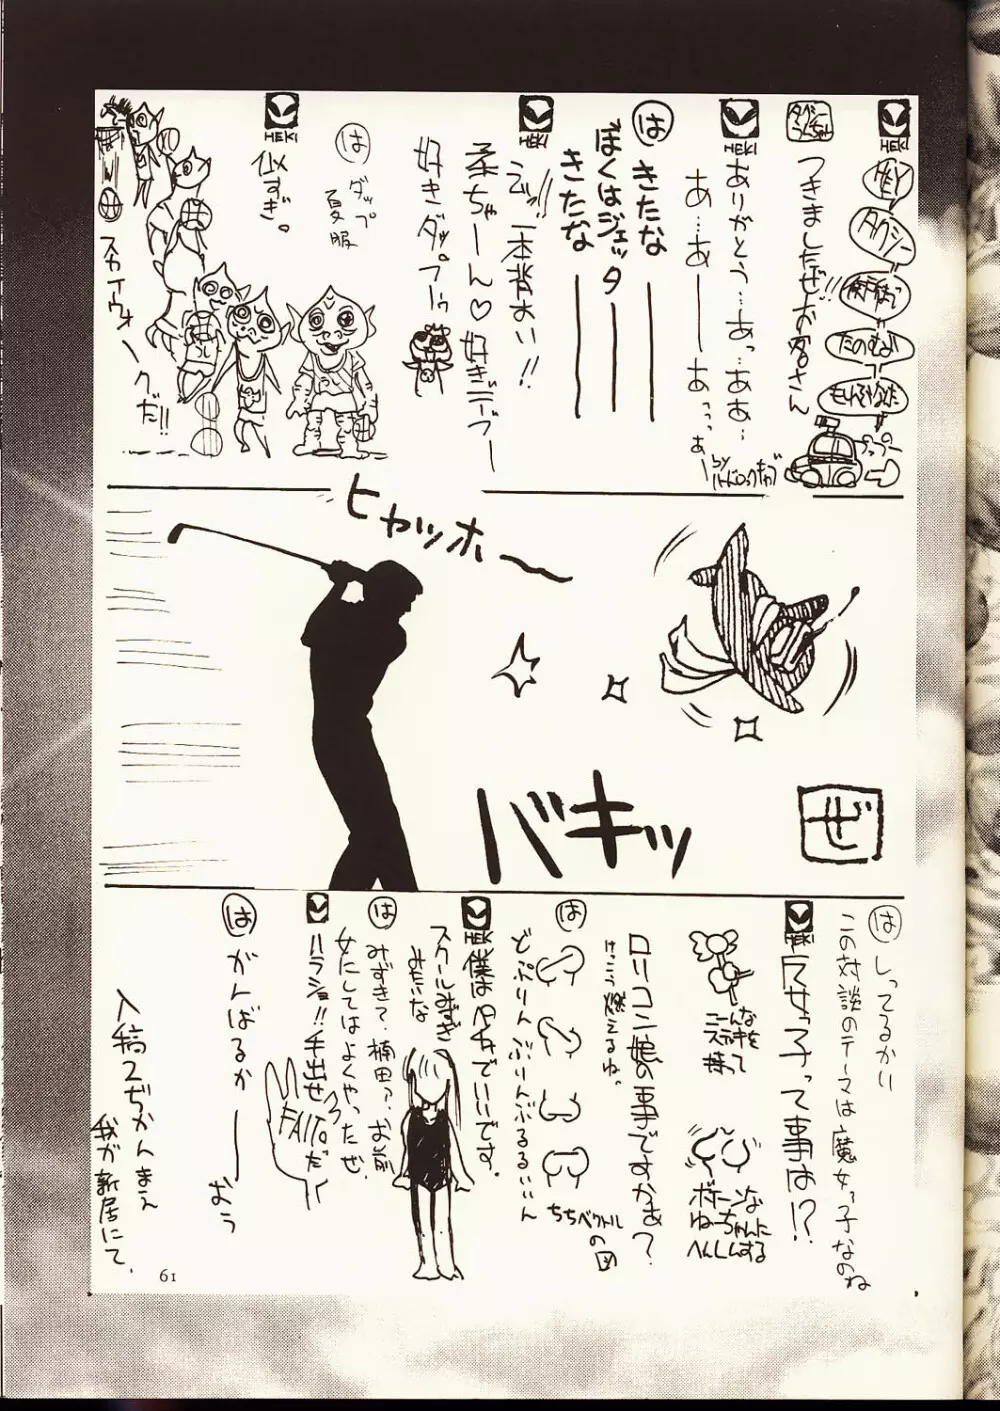 HEKI
HEY
タクシー
たのむよ
つきましたぜお客さん
HEKI
ありがとう…あっ…ああ…
あ…あ——あっっ
by
は
きたな——
ぼくはジェッタ——
きたな——
HEKI
一本背おい!!
柔ちゃーん♡好きデーブー
好きダップーゥ
は
ダップ
夏服
HEKI
似すぎ。
スカイウォークだ!!
ヒャッホ〜
バキッ
ぜ
は
しってるかい
この対談のテーマは魔女っ子なのね
HEKI
魔女っ子って事は!?
こーんな
ステッキを
持って
ボボーンな
ねーちゃんに
へんしんする
ロリコン娘の事ですかぁ?
けっこう燃えるね。
は
どっぷりんぶりんぶるるいぃん
ちちベクトル
の図
HEKI
僕はペチャでいいです。
スクールみずぎ
みたいな
は
みずきて、楠田ァ、お前
女にしてはよくやったぜ、
ハラショ!!手出せ
FAITOだ
は
がんばるかーーおぅ
入稿2ぢかんまえ
我が新居にて、
61